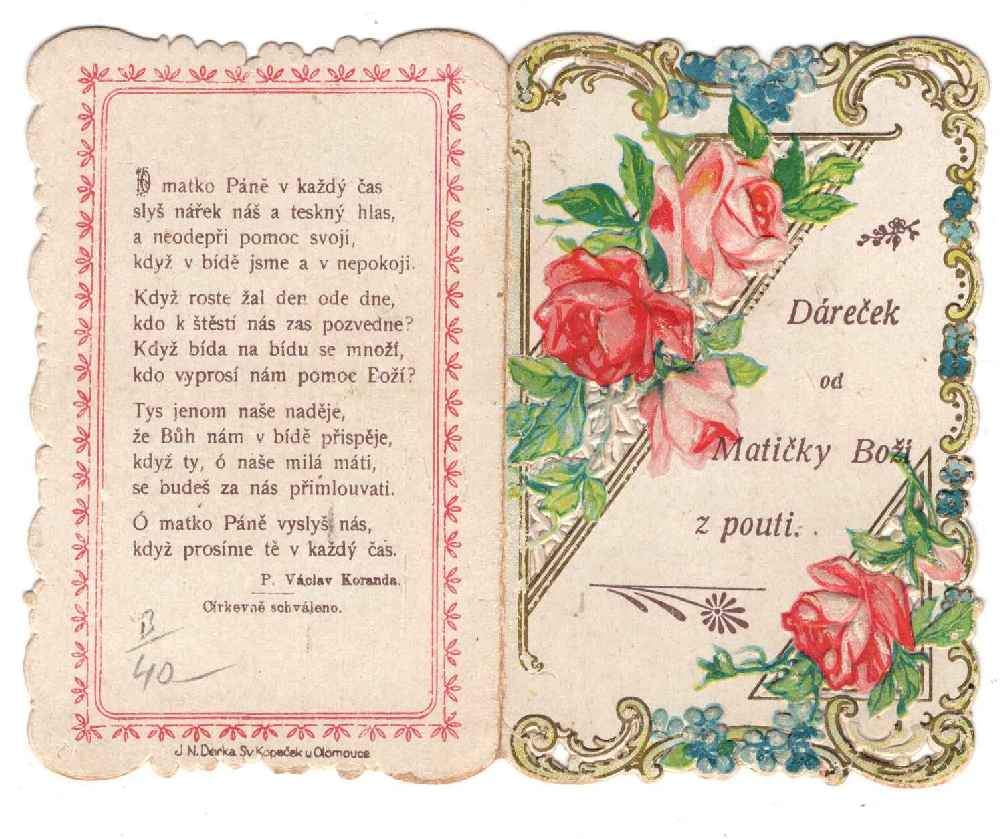 Ó matko Páně v každý čas
slyš nářek náš a teskný hlas,
a neodepři pomoc svoji,
když v bídě jsme a v nepokoji.
Když roste žal den ode dne,
kdo k štěstí nás zas pozvedne?
Když bída na bídu se množí,
kdo vyprosí nám pomoc Boží?
Tys jenom naše naděje,
že Bůh nám v bídě přispěje,
když ty, ó naše milá máti,
se budeš za nás přimlouvati.
Ó matko Páně vyslyš nás,
když prosíme tě v každý čas.
P. Václav Koranda.
Církevně schváleno.
B
40
J. N. Derka Sv. Kopeček u Olomouce
Dáreček
od
Matičky Boží
z pouti.